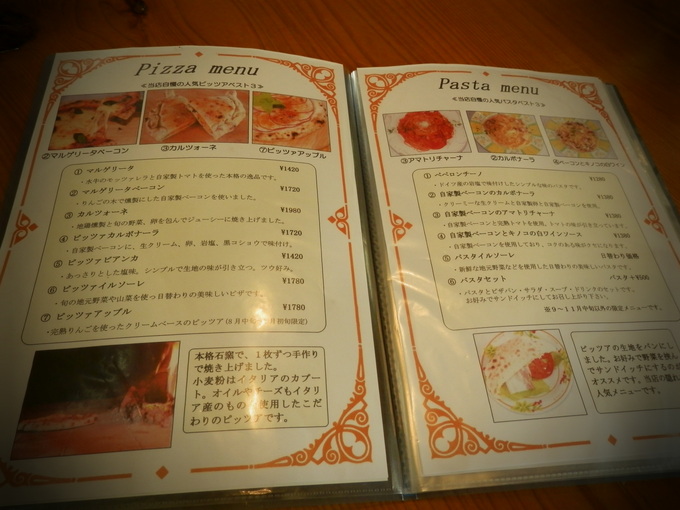 Pizza menu
≪当店自慢の人気ピッツアベスト３≫
②マルゲリータベーコン
③カルツォーネ
⑦ピッツァアップル
① マルゲリータ ¥1420
・水牛のモッツァレラと自家製トマトを使った本格の逸品です。
② マルゲリータベーコン ¥1720
・りんごの木で燻製にした自家製ベーコンを使いました。
③ カルフォーネ ¥1980
・地鶏燻製と旬の野菜、卵を包んでジューシーに焼き上げました。
④ ピッツァカルボナーラ ¥1720
・自家製ベーコンに、生クリーム、卵、岩塩、黒コショウで味付け。
⑤ ピッツァビアンカ ¥1420
・あっさりとした塩味。シンプルで生地の味が引き立つ、ツウ好み。
⑥ ピッツァイルソーレ ¥1780
・旬の地元野菜や山菜を使っ日替わりの美味しいピザです。
⑦ ピッツァアップル ¥1780
・完熟りんごを使ったクリームベースのピッツァ
本格石窯で、１枚ずつ手作り
で焼き上げました。
小麦粉はイタリアのカプー
ト。オイルやチーズもイタリ
ア産のもの使用したこだ
わりのピッツアです。
Pasta menu
≪当店自慢の人気パスタベスト３≫
③アマトリチャーナ
②カルボナーラ
④ベーコンとキノコの白ワイン
① ペペロンチーノ
・ドイツ産の岩塩で味付けしたシンプルな味のパスタです。
② 自家製ベーコンのカルボナーラ
・クリーミーな生クリームと自家製卵と自家製ベーコンを使用。
③ 自家製ベーコンのアマトリチャーナ
・自家製ベーコンと完熟トマトを使用。トマトの味が引き立っています。
④ 自家製ベーコンとキノコの白ワインソース
・自家製ベーコンを使用しており、コクのある味がクセになります。
⑤ パスタイルソーレ 日替わり価格
・新鮮な地元野菜などを使用した日替わりの美味しいパスタです。
⑥ パスタセット パスタ＋¥500
・パスタとピザパン・サラダ・スープ・ドリンクのセットです。
お好みでサンドイッチにしてお召し上がり下さい。
※９～１１月中旬以外の限定メニューです。
ピッツアの生地をパンにし
ました。お好みで野菜を挟ん
でサンドイッチにするのが
オススメです。当店の隠れ
人気メニューです。